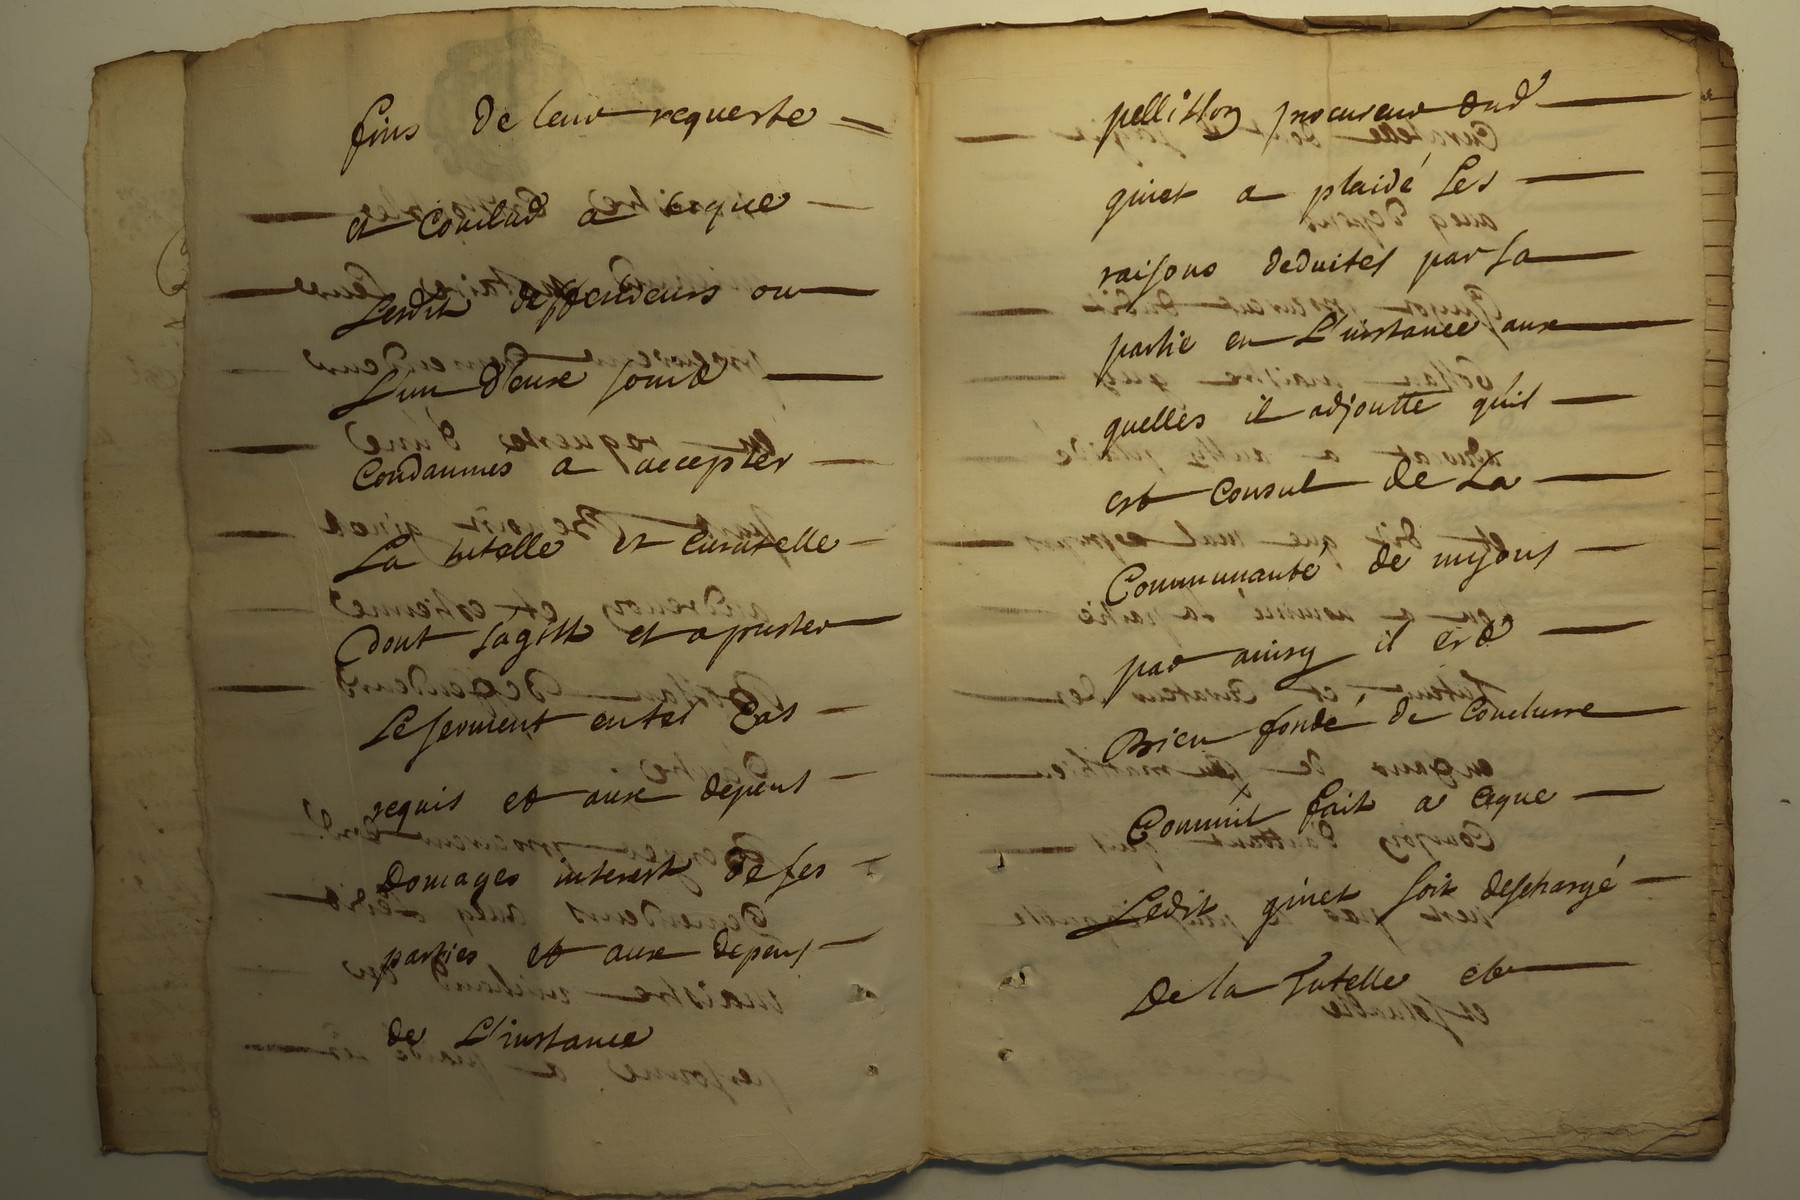 fins de leur requeste
et Conclud a ceque
Lesdits deffendeurs ou
L'un d'eux soint
Condamnes a accepter
La tutelle et curatelle
dont sagitt et a prester
Le serment en tel cas
requis et aux depens
domages interest de ses
parties et aux depens
de L'instance
pellisson procureur dud
ginet a plaidé Les
raisons deduites par sa
partie en L'instance aux
quelles il adjoutte quil
est Consul de La
Communauté de
par ainsy il est
Bien fondé de Conclurre
Comm'il fait a ceque
Ledit ginet soit deschargé
De la Tutelle et